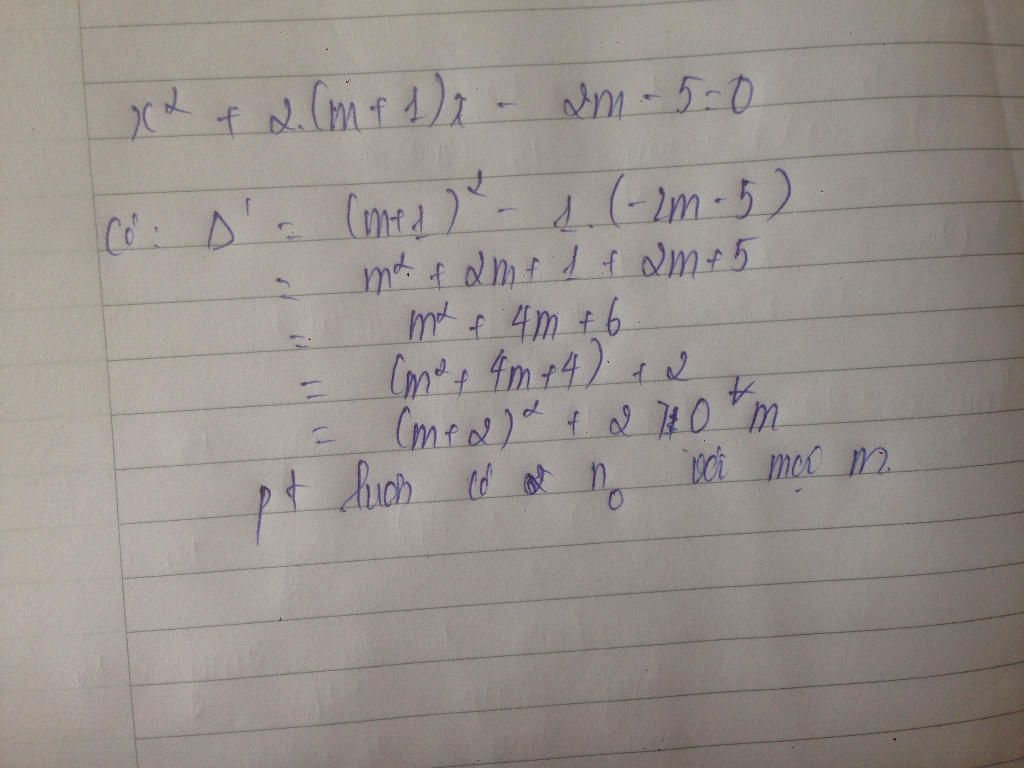 x² + 2.(m+1)x - 2m - 5=0
Có: Δ' = (m+1)² - 1.(-2m-5)
= m² + 2m + 1 + 2m+5
= m² + 4m + 6
= (m² + 4m+4) + 2
= (m+2)² + 2 > 0 ∀m
pt luôn có 2 n₀ với mọi m.